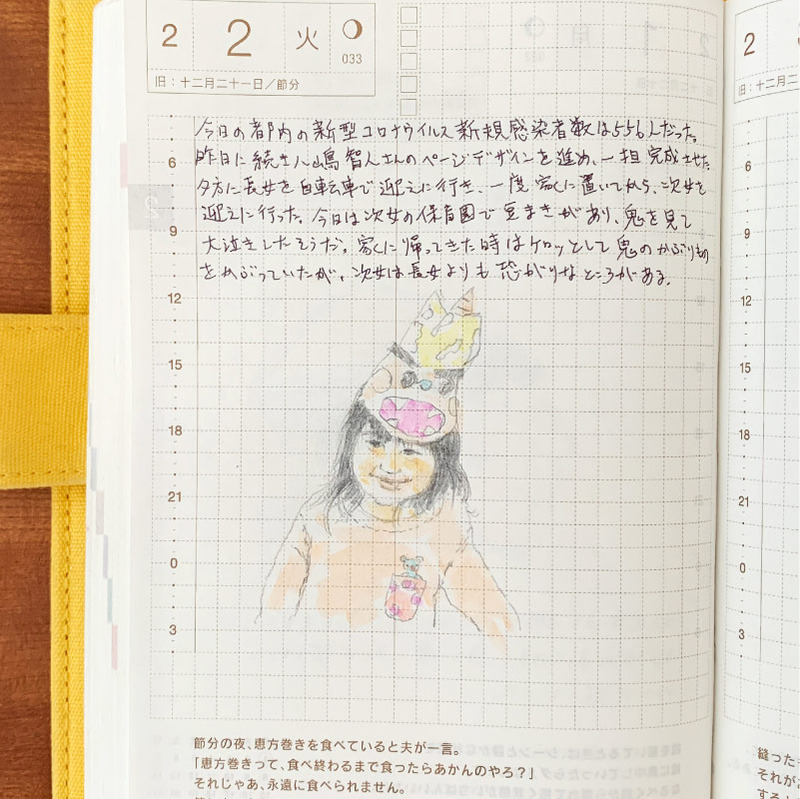 2 2 火
033
旧：十二月二十一日／節分
今日の都内の新型コロナウイルス新規感染者数は556人だった。
昨日に続き八嶋智人さんのページデザインを進め、一担完成させた。
夕方に長女を自転車で迎えに行き、一度家に置いてから、次女を
迎えに行った。今日は次女の保育園で豆まきがあり、鬼を見て
大泣きしたそうだ。家に帰ってきた時はケロッとして鬼のかぶりもの
をかぶっていたが、次女は長女よりも恐がりなところがある。
6
9
12
15
18
21
0
3
節分の夜、恵方巻きを食べていると夫が一言。
「恵方巻きって、食べ終わるまで食ったらあかんのやろ？」
それじゃあ、永遠に食べられません。
2
旧：十二月二
6
9
12
15
18
21
0
3
縫った
それが
する